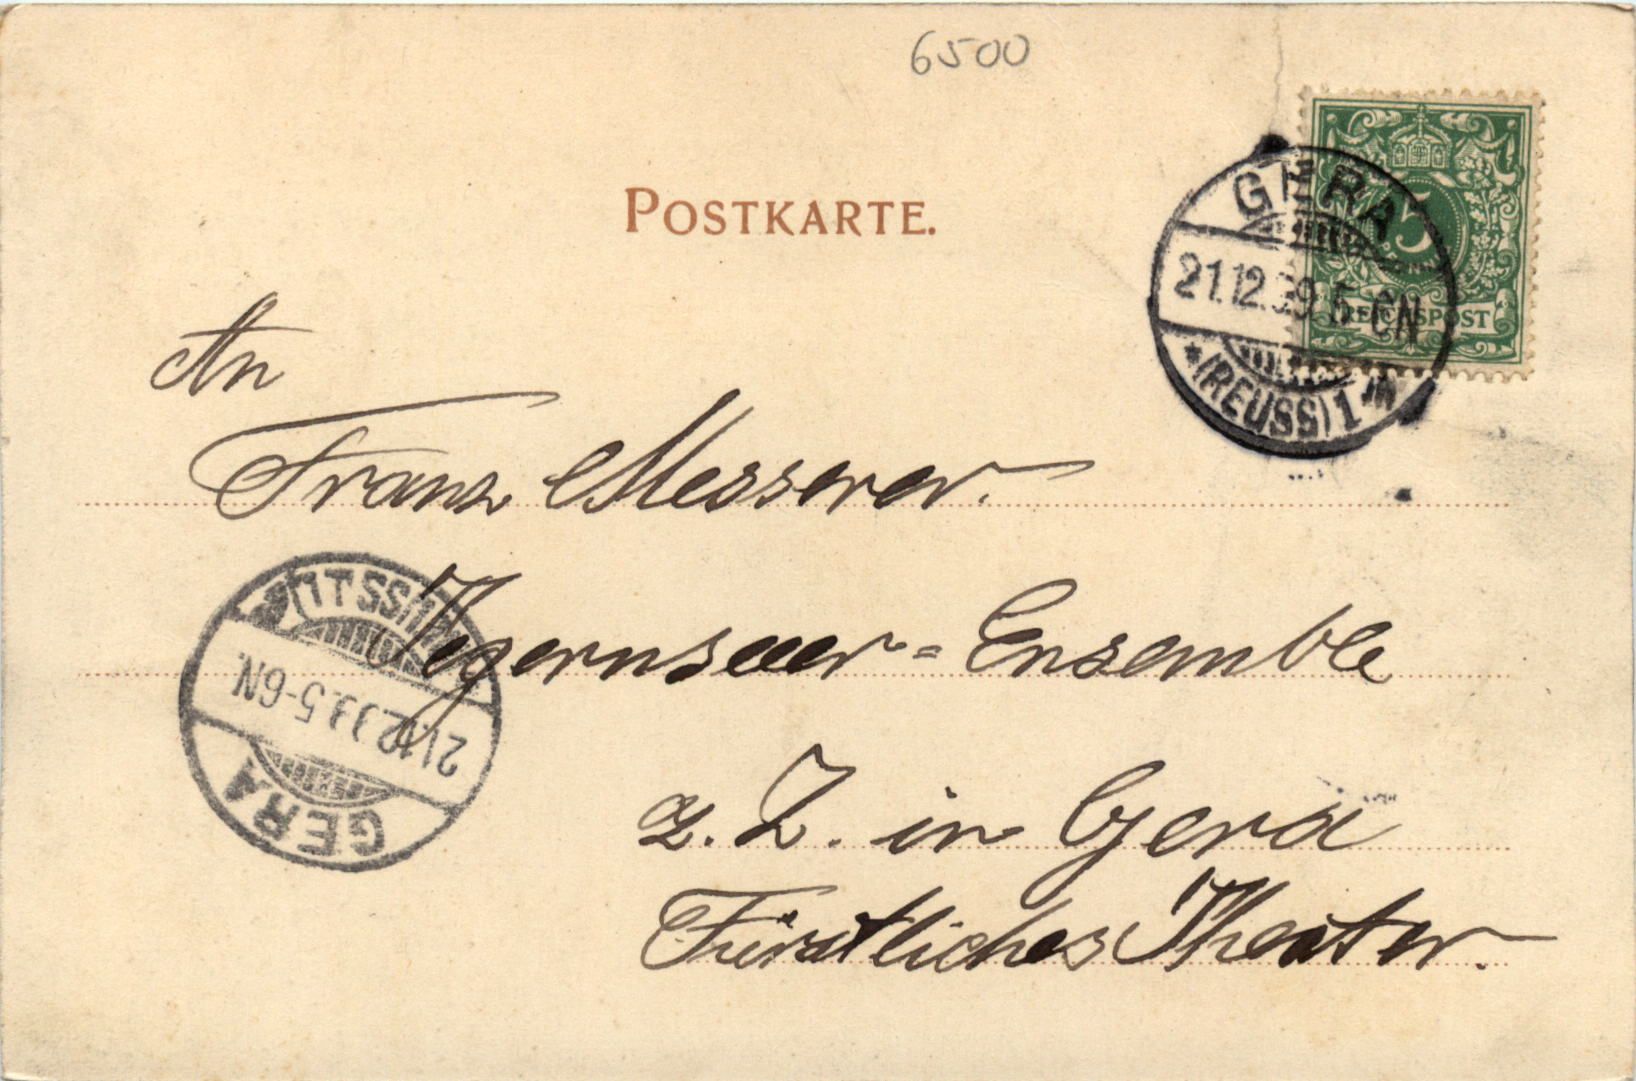 6500
POSTKARTE.
5
REICHSPOST
GERA
21.12.99.5-6N
* (REUSS) 1 *
An
Franz Messerer.
Tegernseeer = Ensemble
z. Z. in Gera
Fürstliches Theater.
GERA
21.12.99.5-6N.